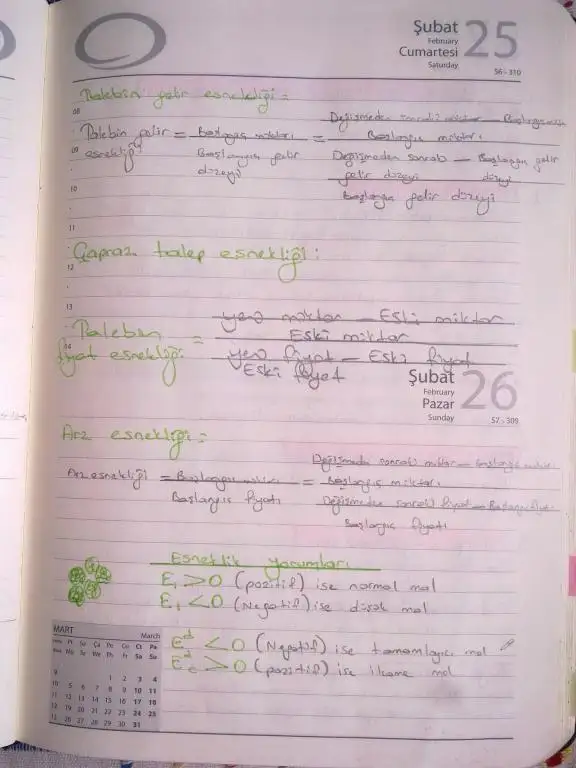 Şubat 25
February
Cumartesi
Saturday
56 - 310
Talebin gelir esnekliği =
08
Değişmeden sonraki miktar — Başlangıç miktarı
Talebin gelir = Başlangıç miktarı = Başlangıç miktarı
09
esnekliği Başlangıç gelir Değişmeden sonraki — Başlangıç gelir
düzeyi gelir düzeyi düzeyi
10
Başlangıç gelir düzeyi
11
Çapraz talep esnekliği :
12
13
yeni miktar — Eski miktar
Talebin = Eski miktar
14
fiyat esnekliği yeni fiyat — Eski fiyat
Eski fiyat
Şubat 26
February
Pazar
Sunday
57 - 309
Arz esnekliği =
Değişmeden sonraki miktar — Başlangıç miktarı
Arz esnekliği = Başlangıç miktarı = Başlangıç miktarı
Başlangıç fiyatı Değişmeden sonraki fiyat — Başlangıç fiyatı
Başlangıç fiyatı
Esneklik yorumları
E, > 0 (pozitif) ise normal mal
E, < 0 (Negatif) ise düşük mal
MART March
Eᵈ < 0 (Negatif) ise tamamlayıcı mal
Eᵈc > 0 (pozitif) ise ikame mal
Pt Sa Ça Pe Cu Ct Pa
Mo Tu We Th Fr Sa Su
9 1 2 3 4
10 5 6 7 8 9 10 11
11 12 13 14 15 16 17 18
12 19 20 21 22 23 24 25
13 26 27 28 29 30 31